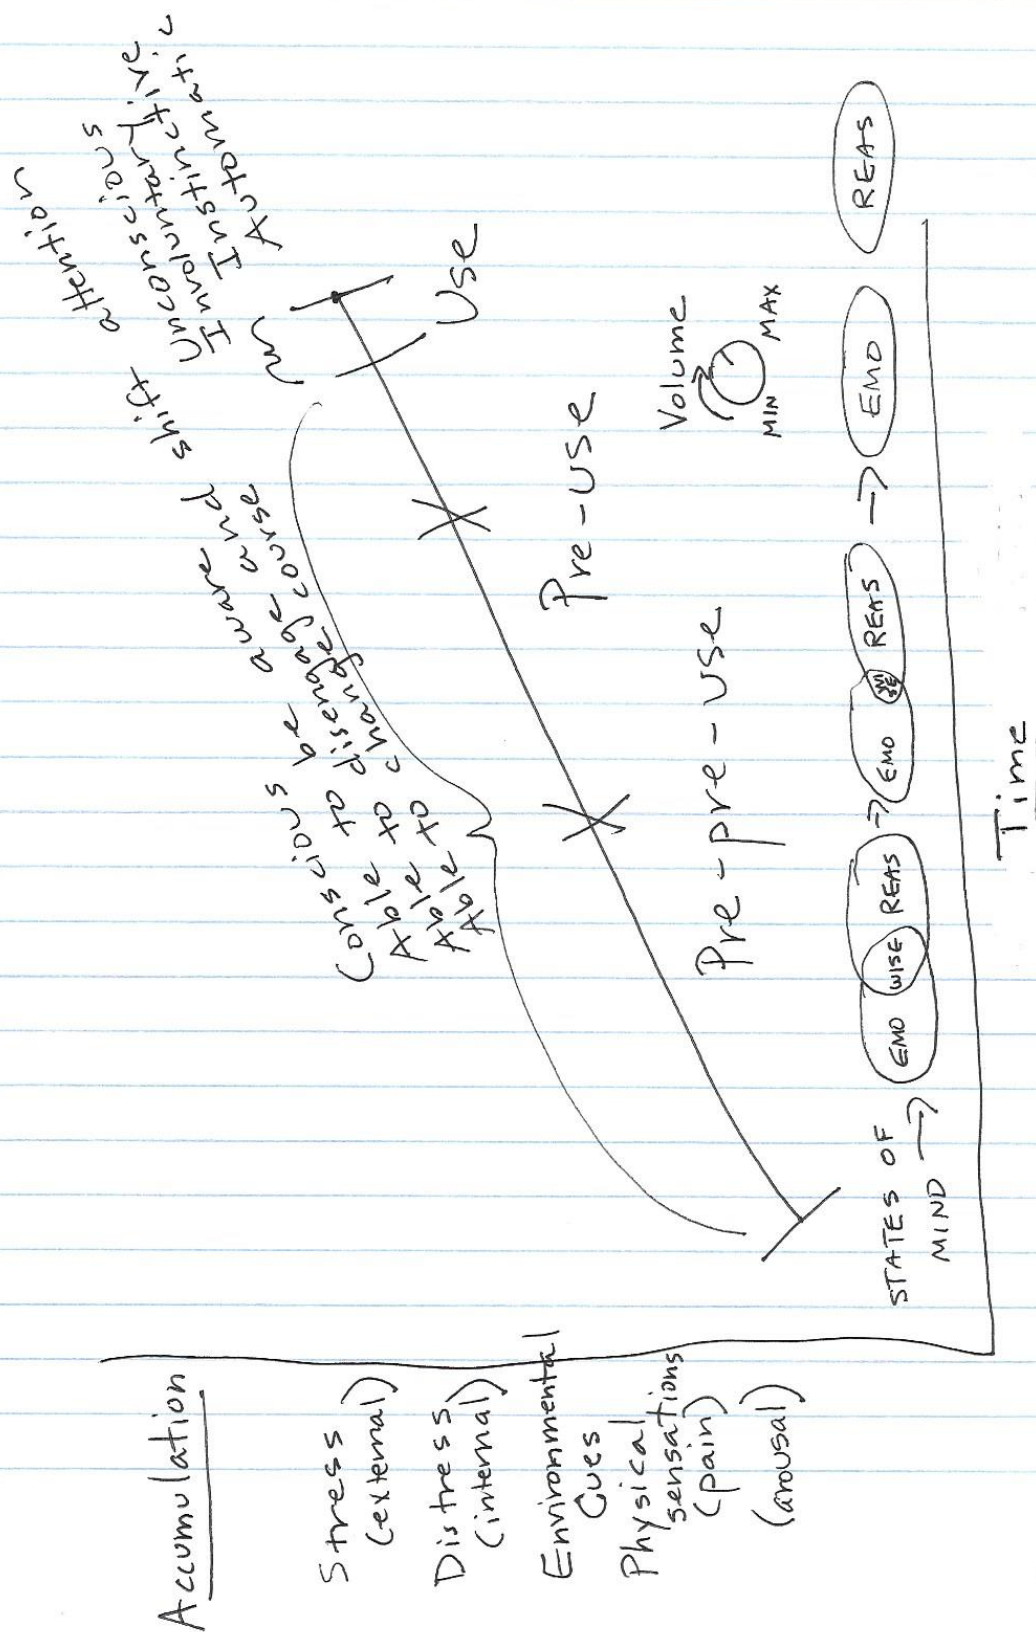 Accumulation
Stress
(external)
Distress
(internal)
Environmental
Cues
Physical
sensations
(pain)
(arousal)
Conscious
Able to be aware
Able to disengage and shift attention
Able to change course
Able to
Unconscious
Involuntary
Instinctive
Automatic
Use
Pre-use
Pre-pre-use
Volume
MIN MAX
STATES OF
MIND →
EMO WISE REAS → EMO WISE REAS → EMO REAS
Time